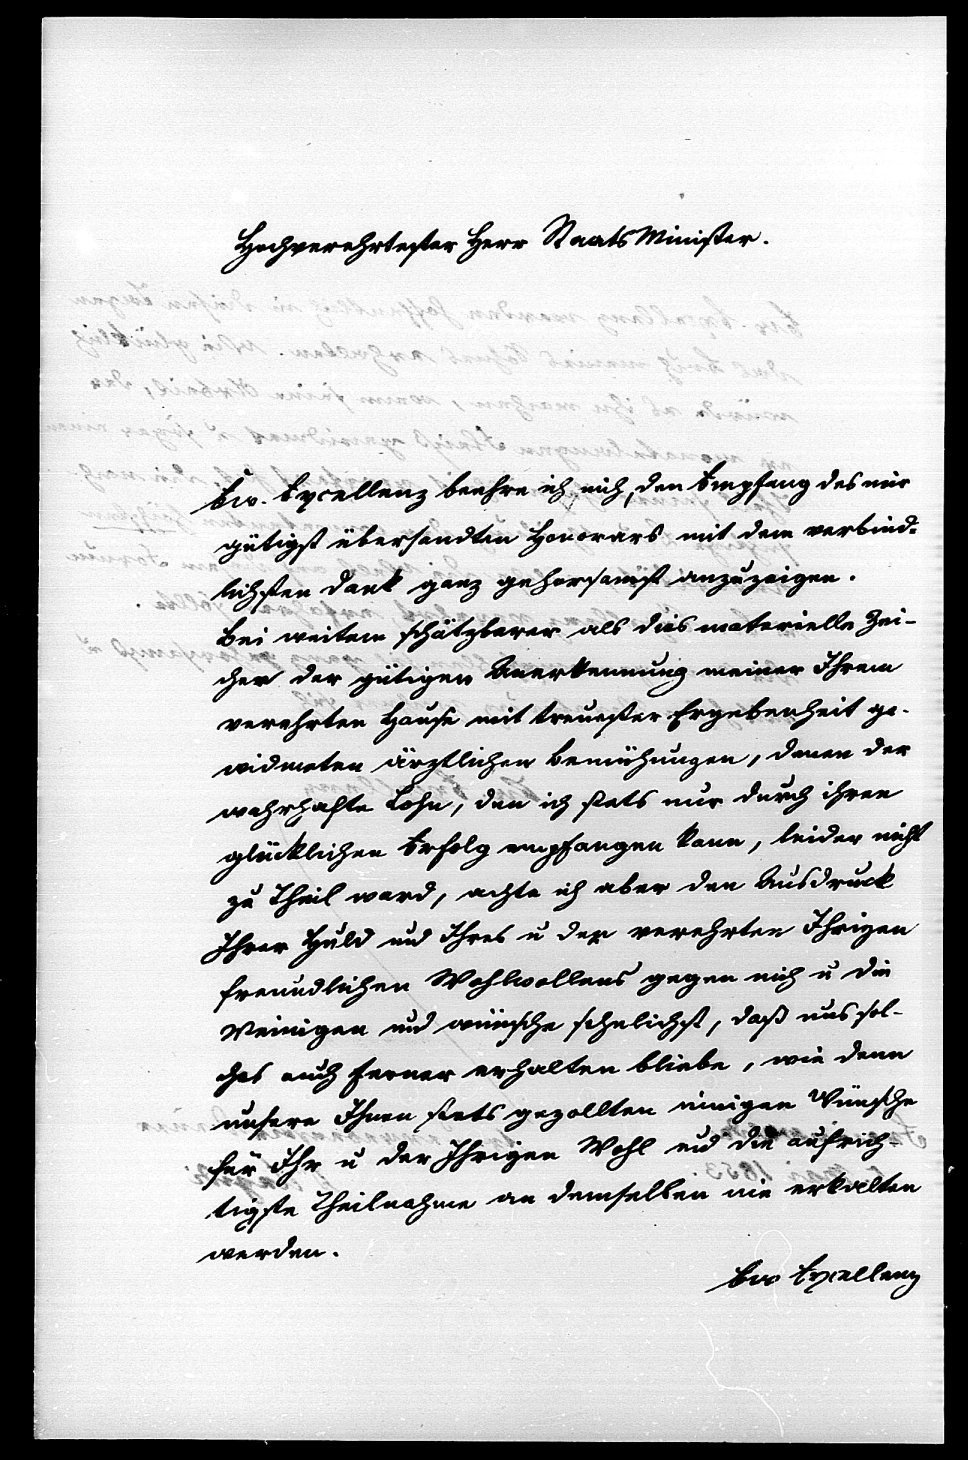 Hochverehrtester Herr Staats Minister.
Ew. Excellenz beehre ich mich, den Empfang des mir
gütigst übersandten Honorars mit dem verbind-
lichsten Dank ganz gehorsamst anzuzeigen.
Bei weitem schätzbarer als dies materielle Zei-
chen der gütigen Anerkennung meiner Ihrem
verehrten Hause mit treuester Ergebenheit ge-
widmeten ärztlichen Bemühungen, denen der
wahrhafte Lohn, den ich stets nur durch ihren
glücklichen Erfolg empfangen kann, leider nicht
zu Theil ward, achte ich aber den Ausdruck
Ihrer Huld und Ihres u der verehrten Ihrigen
freundlichen Wohlwollens gegen mich u die
Meinigen und wünsche sehnlichst, daß uns sol-
ches auch ferner erhalten bliebe, wie denn
unsere Ihnen stets gezollten innigen Wünsche
für Ihr u der Ihrigen Wohl und die aufrich-
tigste Theilnahme an demselben nie erkalten
werden.
Ew Excellenz